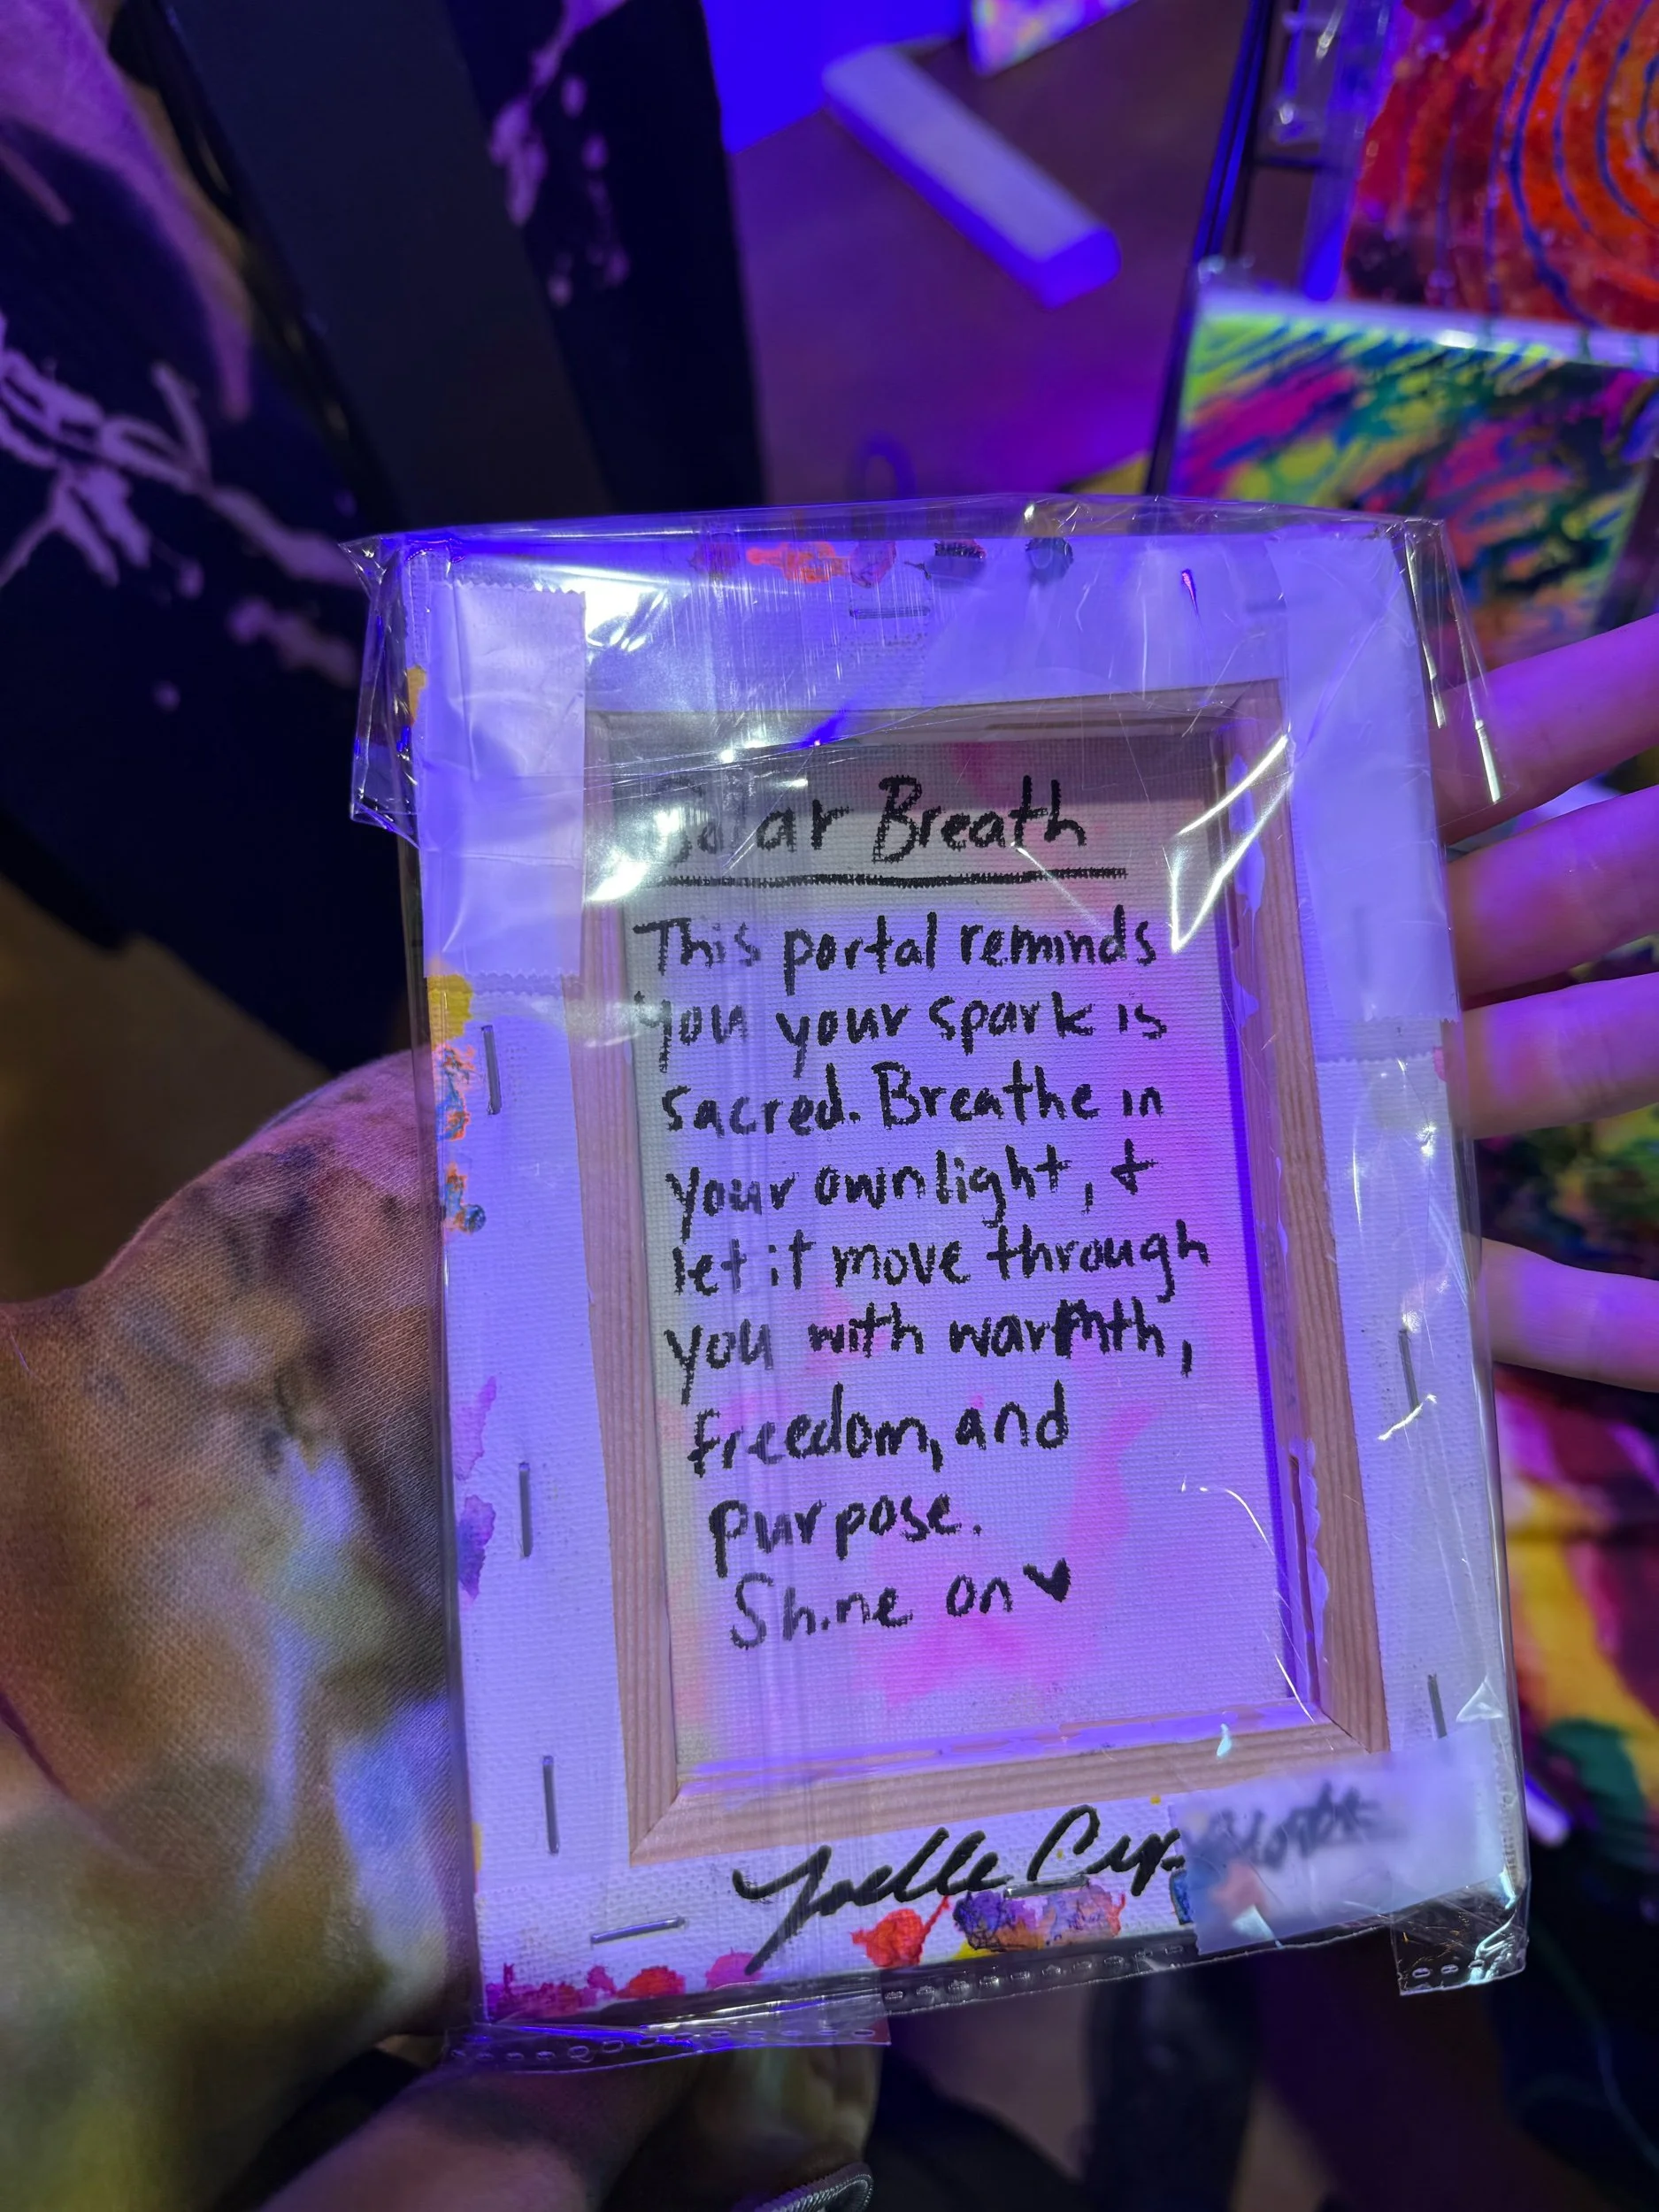 Solar Breath
This portal reminds
you your spark is
sacred. Breathe in
your own light, +
let it move through
you with warmth,
freedom, and
purpose.
Shine on ♥
Joelle